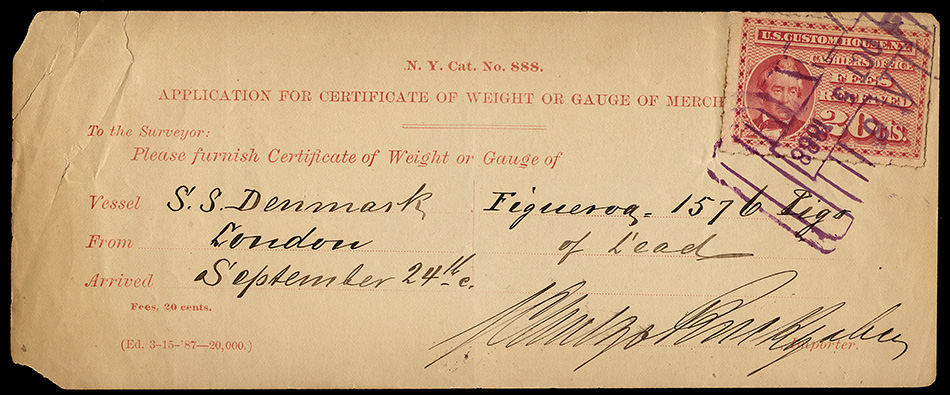 N. Y. Cat. No. 888.
APPLICATION FOR CERTIFICATE OF WEIGHT OR GAUGE OF MERCH
U.S. CUSTOM HOUSE. N.Y.
CASHIER'S OFFICE
FEES
RECEIVED
20 CTS.
To the Surveyor:
Please furnish Certificate of Weight or Gauge of
Vessel S.S. Denmark Figueroa - 1576 Pigs
From London of Lead
Arrived September 24th
Fees, 20 cents.
(Ed. 3-15-'87—20,000.)
Importer.